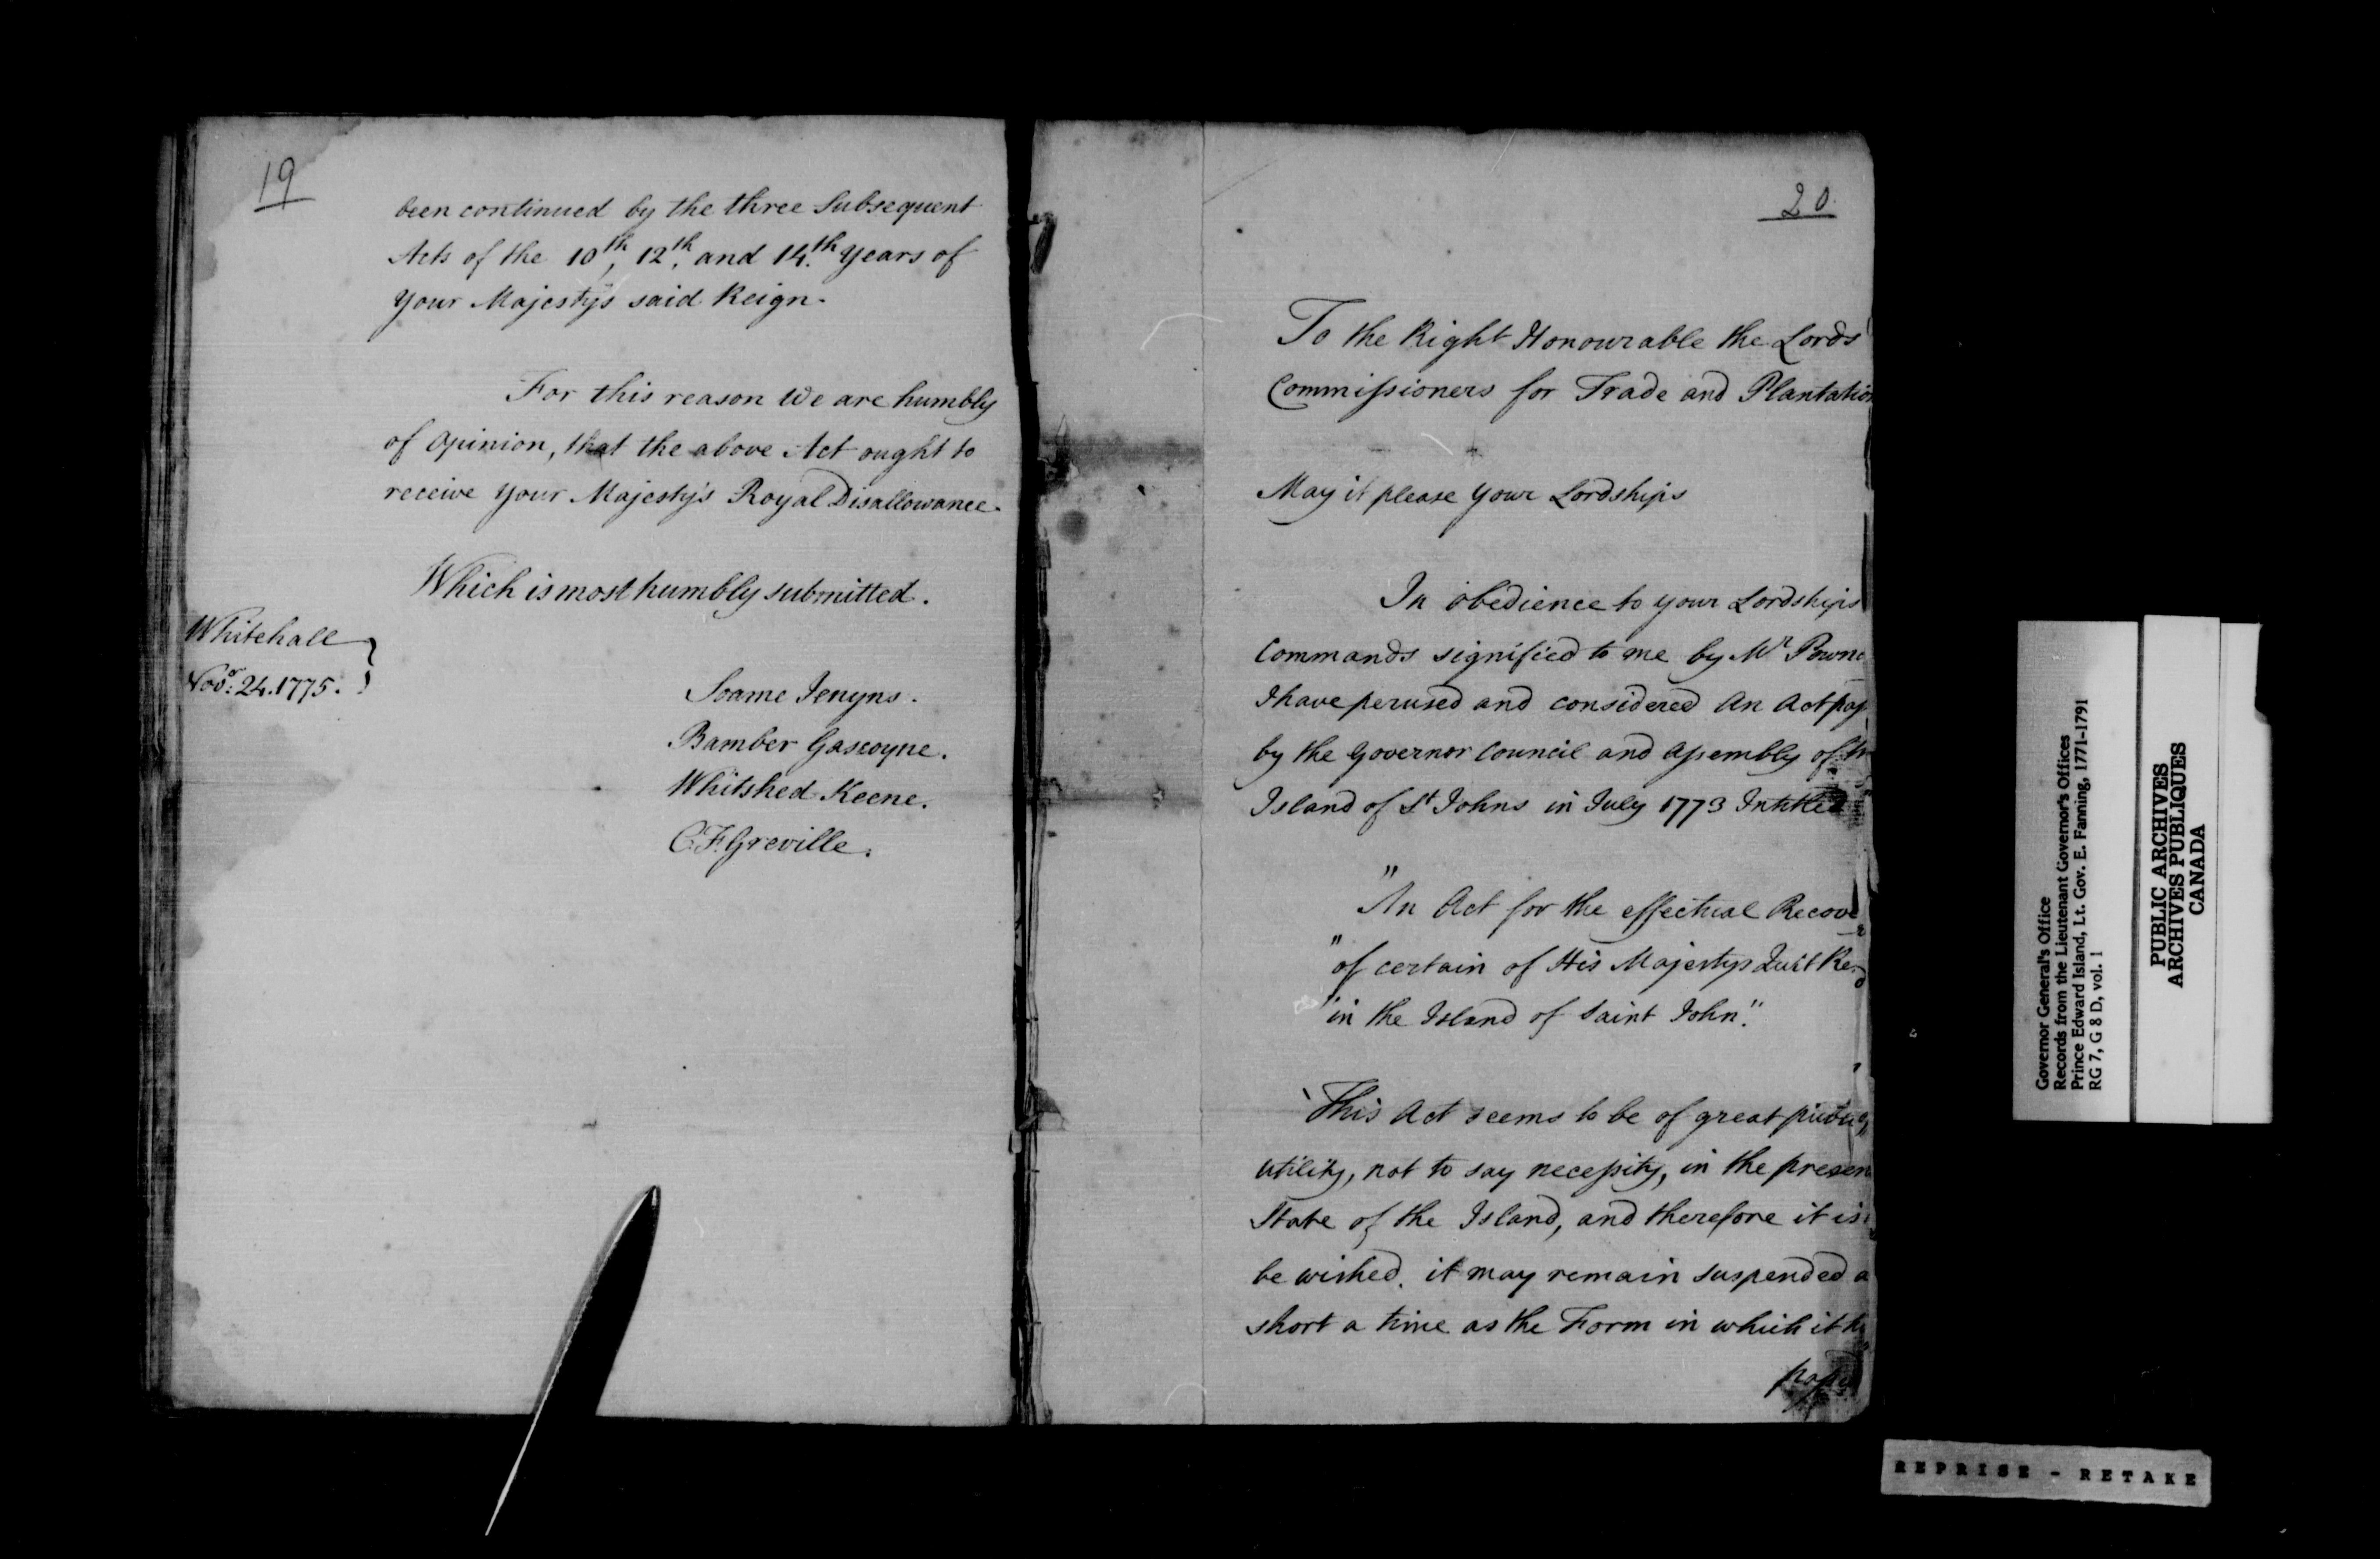 19
been continued by the three Subsequent
Acts of the 10th, 12th, and 14th. Years of
Your Majesty's said Reign.
For this reason We are humbly
of Opinion, that the above Act ought to
receive Your Majesty's Royal Disallowance.
Which is most humbly submitted.
Whitehall
Novr: 24. 1775.
Soame Jenyns.
Bamber Gascoyne.
Whitshed Keene.
C. F. Greville.
20.
To the Right Honourable the Lords
Commissioners for Trade and Plantation
May it please Your Lordships
In obedience to your Lordships
Commands signified to me by Mr Powne
I have perused and considered An Act pas
by the Governor Council and Assembly of
Island of St Johns in July 1773 Intitled
"An Act for the effectual Recove
"of certain of His Majestys Quit Re
"in the Island of Saint John."
This Act seems to be of great
utility, not to say necessity, in the presen
State of the Island, and therefore it is
be wished. it may remain suspended a
short a time as the Form in which it h
Governor General's Office
Records from the Lieutenant Governor's Offices
Prince Edward Island, Lt. Gov. E. Fanning, 1771-1791
RG 7, G 8 D, vol. 1
PUBLIC ARCHIVES
ARCHIVES PUBLIQUES
CANADA
REPRISE - RETAKE